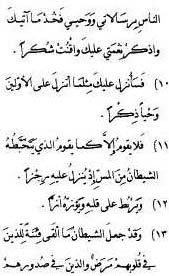 الناس برسالاتي ووحيي فخذ ما آتيك
واذكر نعمتي عليك واقنُت شكراً.
١٠) فسأنزل عليك مثلما أنزل على الأولين
وحياً ذكراً.
١١) فلا يقوم إلا كما يقوم الذي يتخبطه
الشيطان من المس إذ يُنزل عليه رجزاً.
١٢) ويربط على قلبه ويؤزه أزاً.
١٣) وقد جعل الشيطان ما ألقى فتنة للذين
في قلوبهم مرض والذين في صدورهم